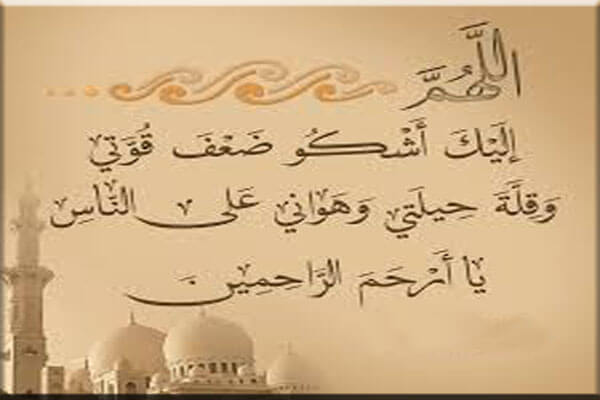 اللَّهُمَّ
إِلَيْكَ أَشْكُو ضَعْفَ قُوَّتِي
وَقِلَّةَ حِيلَتِي وَهَوَانِي عَلَى النَّاسِ
يَا أَرْحَمَ الرَّاحِمِينَ